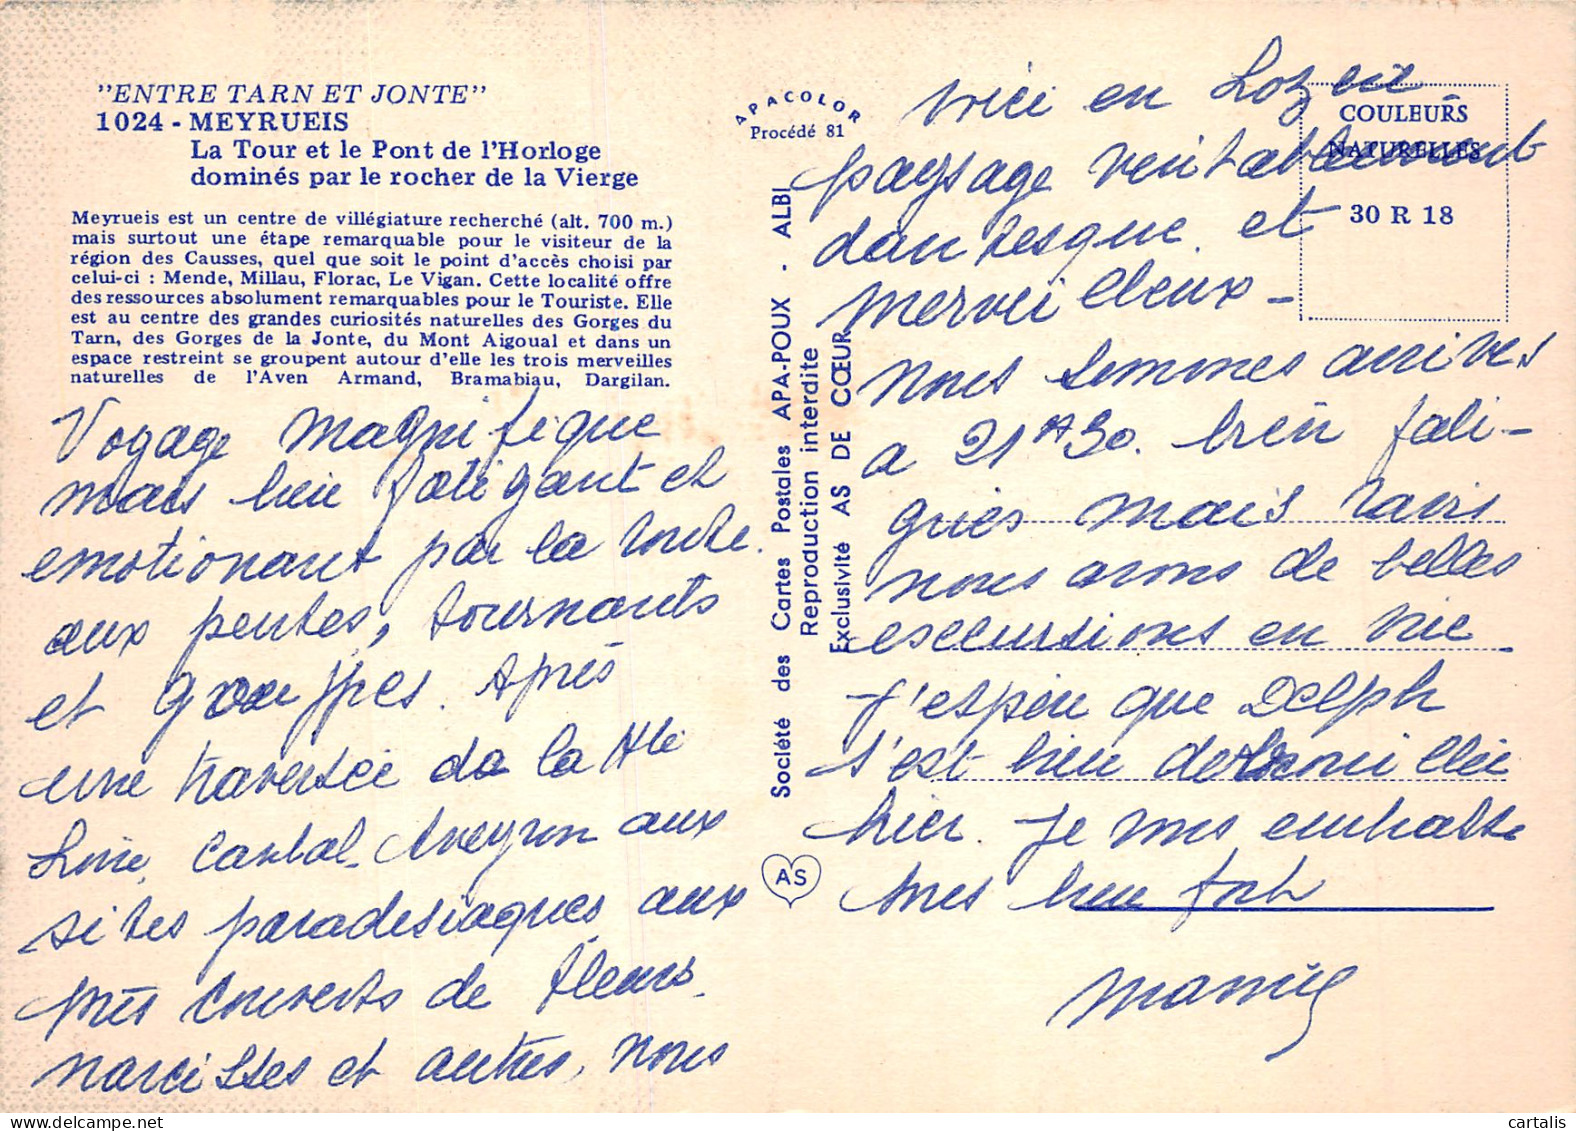 "ENTRE TARN ET JONTE"
1024 - MEYRUEIS
La Tour et le Pont de l'Horloge
dominés par le rocher de la Vierge
Meyrueis est un centre de villégiature recherché (alt. 700 m.)
mais surtout une étape remarquable pour le visiteur de la
région des Causses, quel que soit le point d'accès choisi par
celui-ci : Mende, Millau, Florac, Le Vigan. Cette localité offre
des ressources absolument remarquables pour le Touriste. Elle
est au centre des grandes curiosités naturelles des Gorges du
Tarn, des Gorges de la Jonte, du Mont Aigoual et dans un
espace restreint se groupent autour d'elle les trois merveilles
naturelles de l'Aven Armand, Bramabiau, Dargilan.
Voyage magnifique
mais bien fatigant et
emotionant par la route.
aux pentes, tournants
et . Après
une traversée da la Hte
Loire, Cantal, Aveyron aux
sites paradesiaques aux
près couverts de fleurs
narcisses et autres, nous
APACOLOR
Procédé 81
Société des Cartes Postales APA-POUX - ALBI
Reproduction interdite
Exclusivité AS DE CŒUR
AS
COULEURS
NATURELLES
30 R 18
ici en Lozere
paysage veritablement
dantesque et
merveilleux -
nous sommes arrives
a 21 H 30. bien fati-
gués mais ravis
nous avons de belles
excursions en vue
J'espere que Delph
s'est bien
hier. Je vous embrasse
tous bien fort
Mamie
cartalis.com